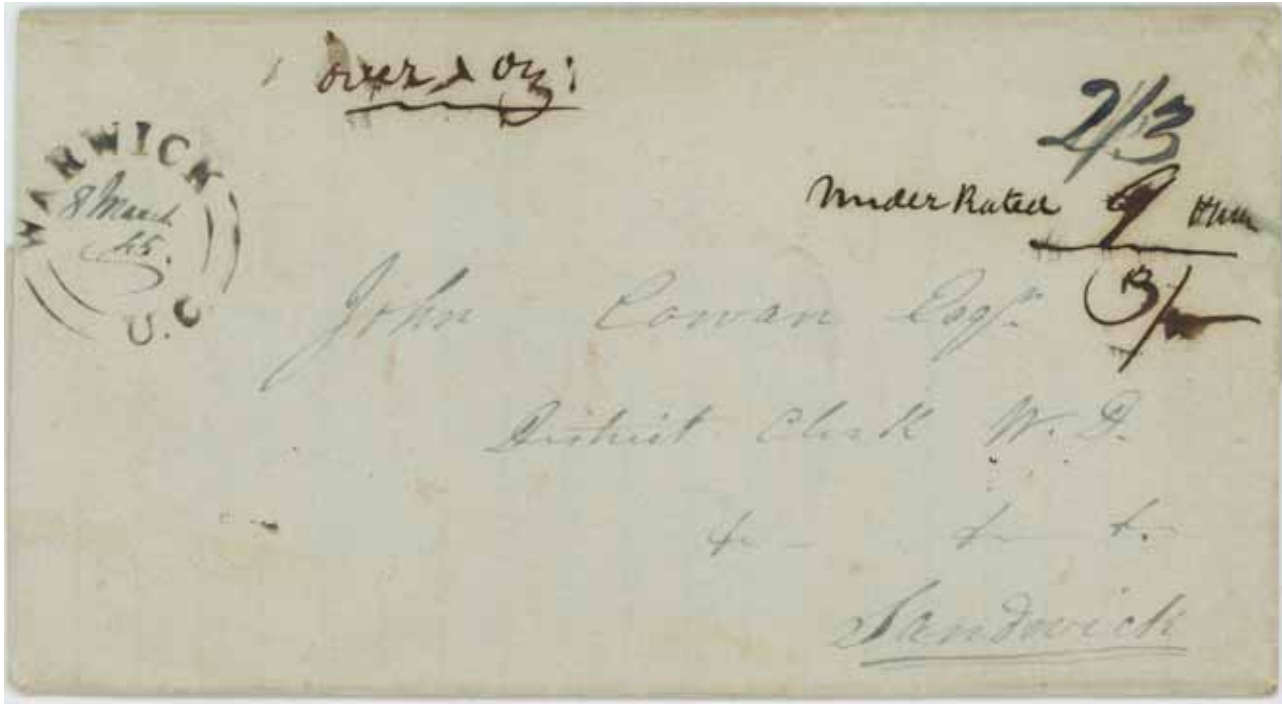 over 1 oz:
2/3
WARWICK
8 March
45.
U.C.
Under Rated 9
3/
John Cowan Esqr.
District Clerk W. D.
&c &c &c.
Sandwich